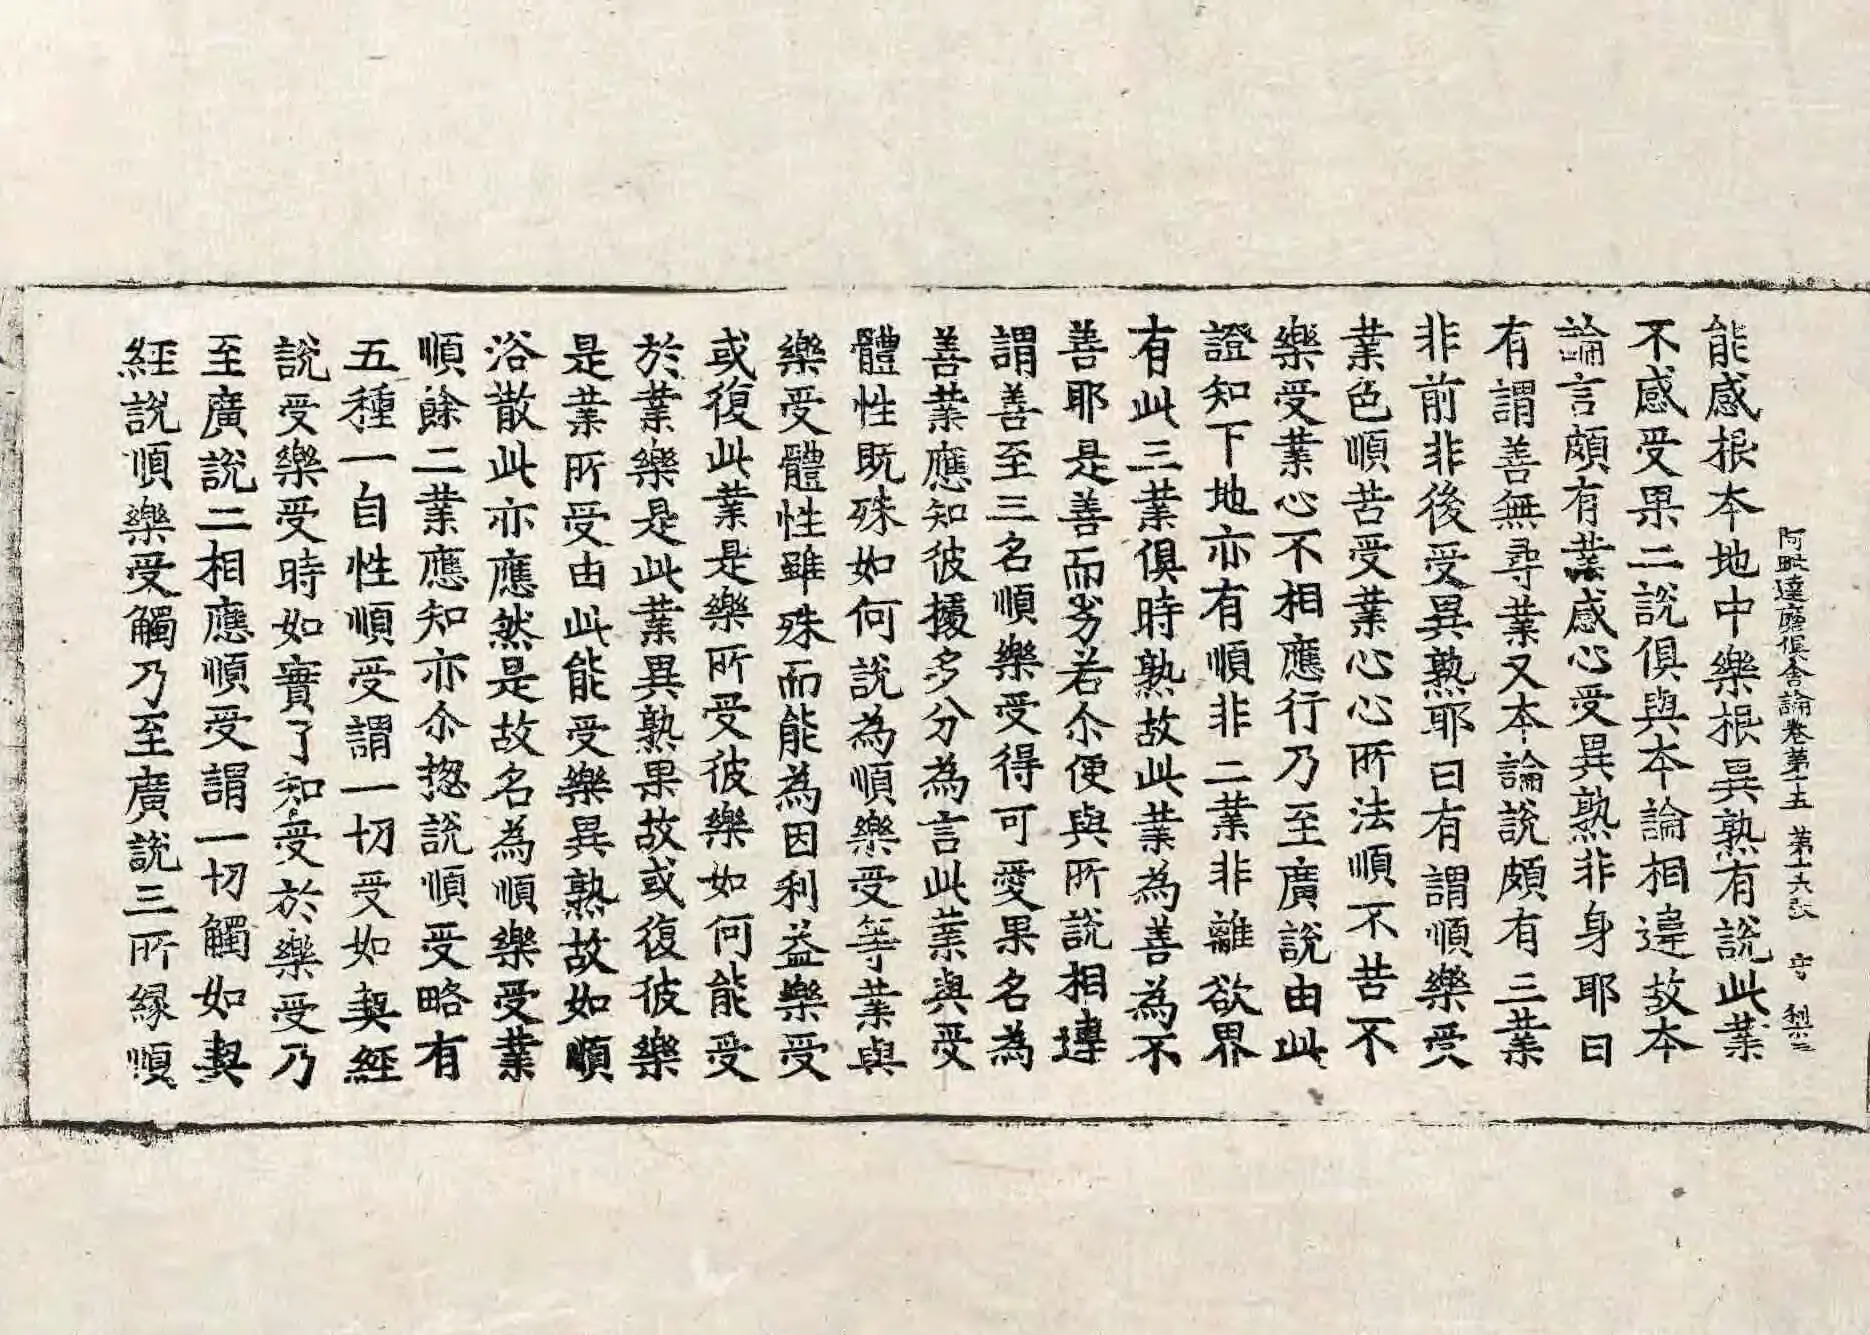 阿毗達磨俱舍論卷第十五 第十六張 守 梨三
能感根本地中樂根異熟有說此業
不感受果二說俱與本論相違故本
論言頗有業感心受異熟非身耶曰
有謂善無尋業又本論說頗有三業
非前非後受異熟耶曰有謂順樂受
業色順苦受業心心所法順不苦不
樂受業心不相應行乃至廣說由此
證知下地亦有順非二業非離欲界
有此三業俱時熟故此業為善為不
善耶是善而劣若尒便與所說相違
謂善至三名順樂受得可愛果名為
善業應知彼據多分為言此業與受
體性既殊如何說為順樂受等業與
樂受體性雖殊而能為因利益樂受
或復此業是樂所受彼樂如何能受
於業樂是此業異熟果故或復彼樂
是業所受由此能受樂異熟故如順
浴散此亦應然是故名為順樂受業
順餘二業應知亦尒揔說順受略有
五種一自性順受謂一切受如契經
說受樂受時如實了知受於樂受乃
至廣說二相應順受謂一切觸如契
經說順樂受觸乃至廣說三所緣順